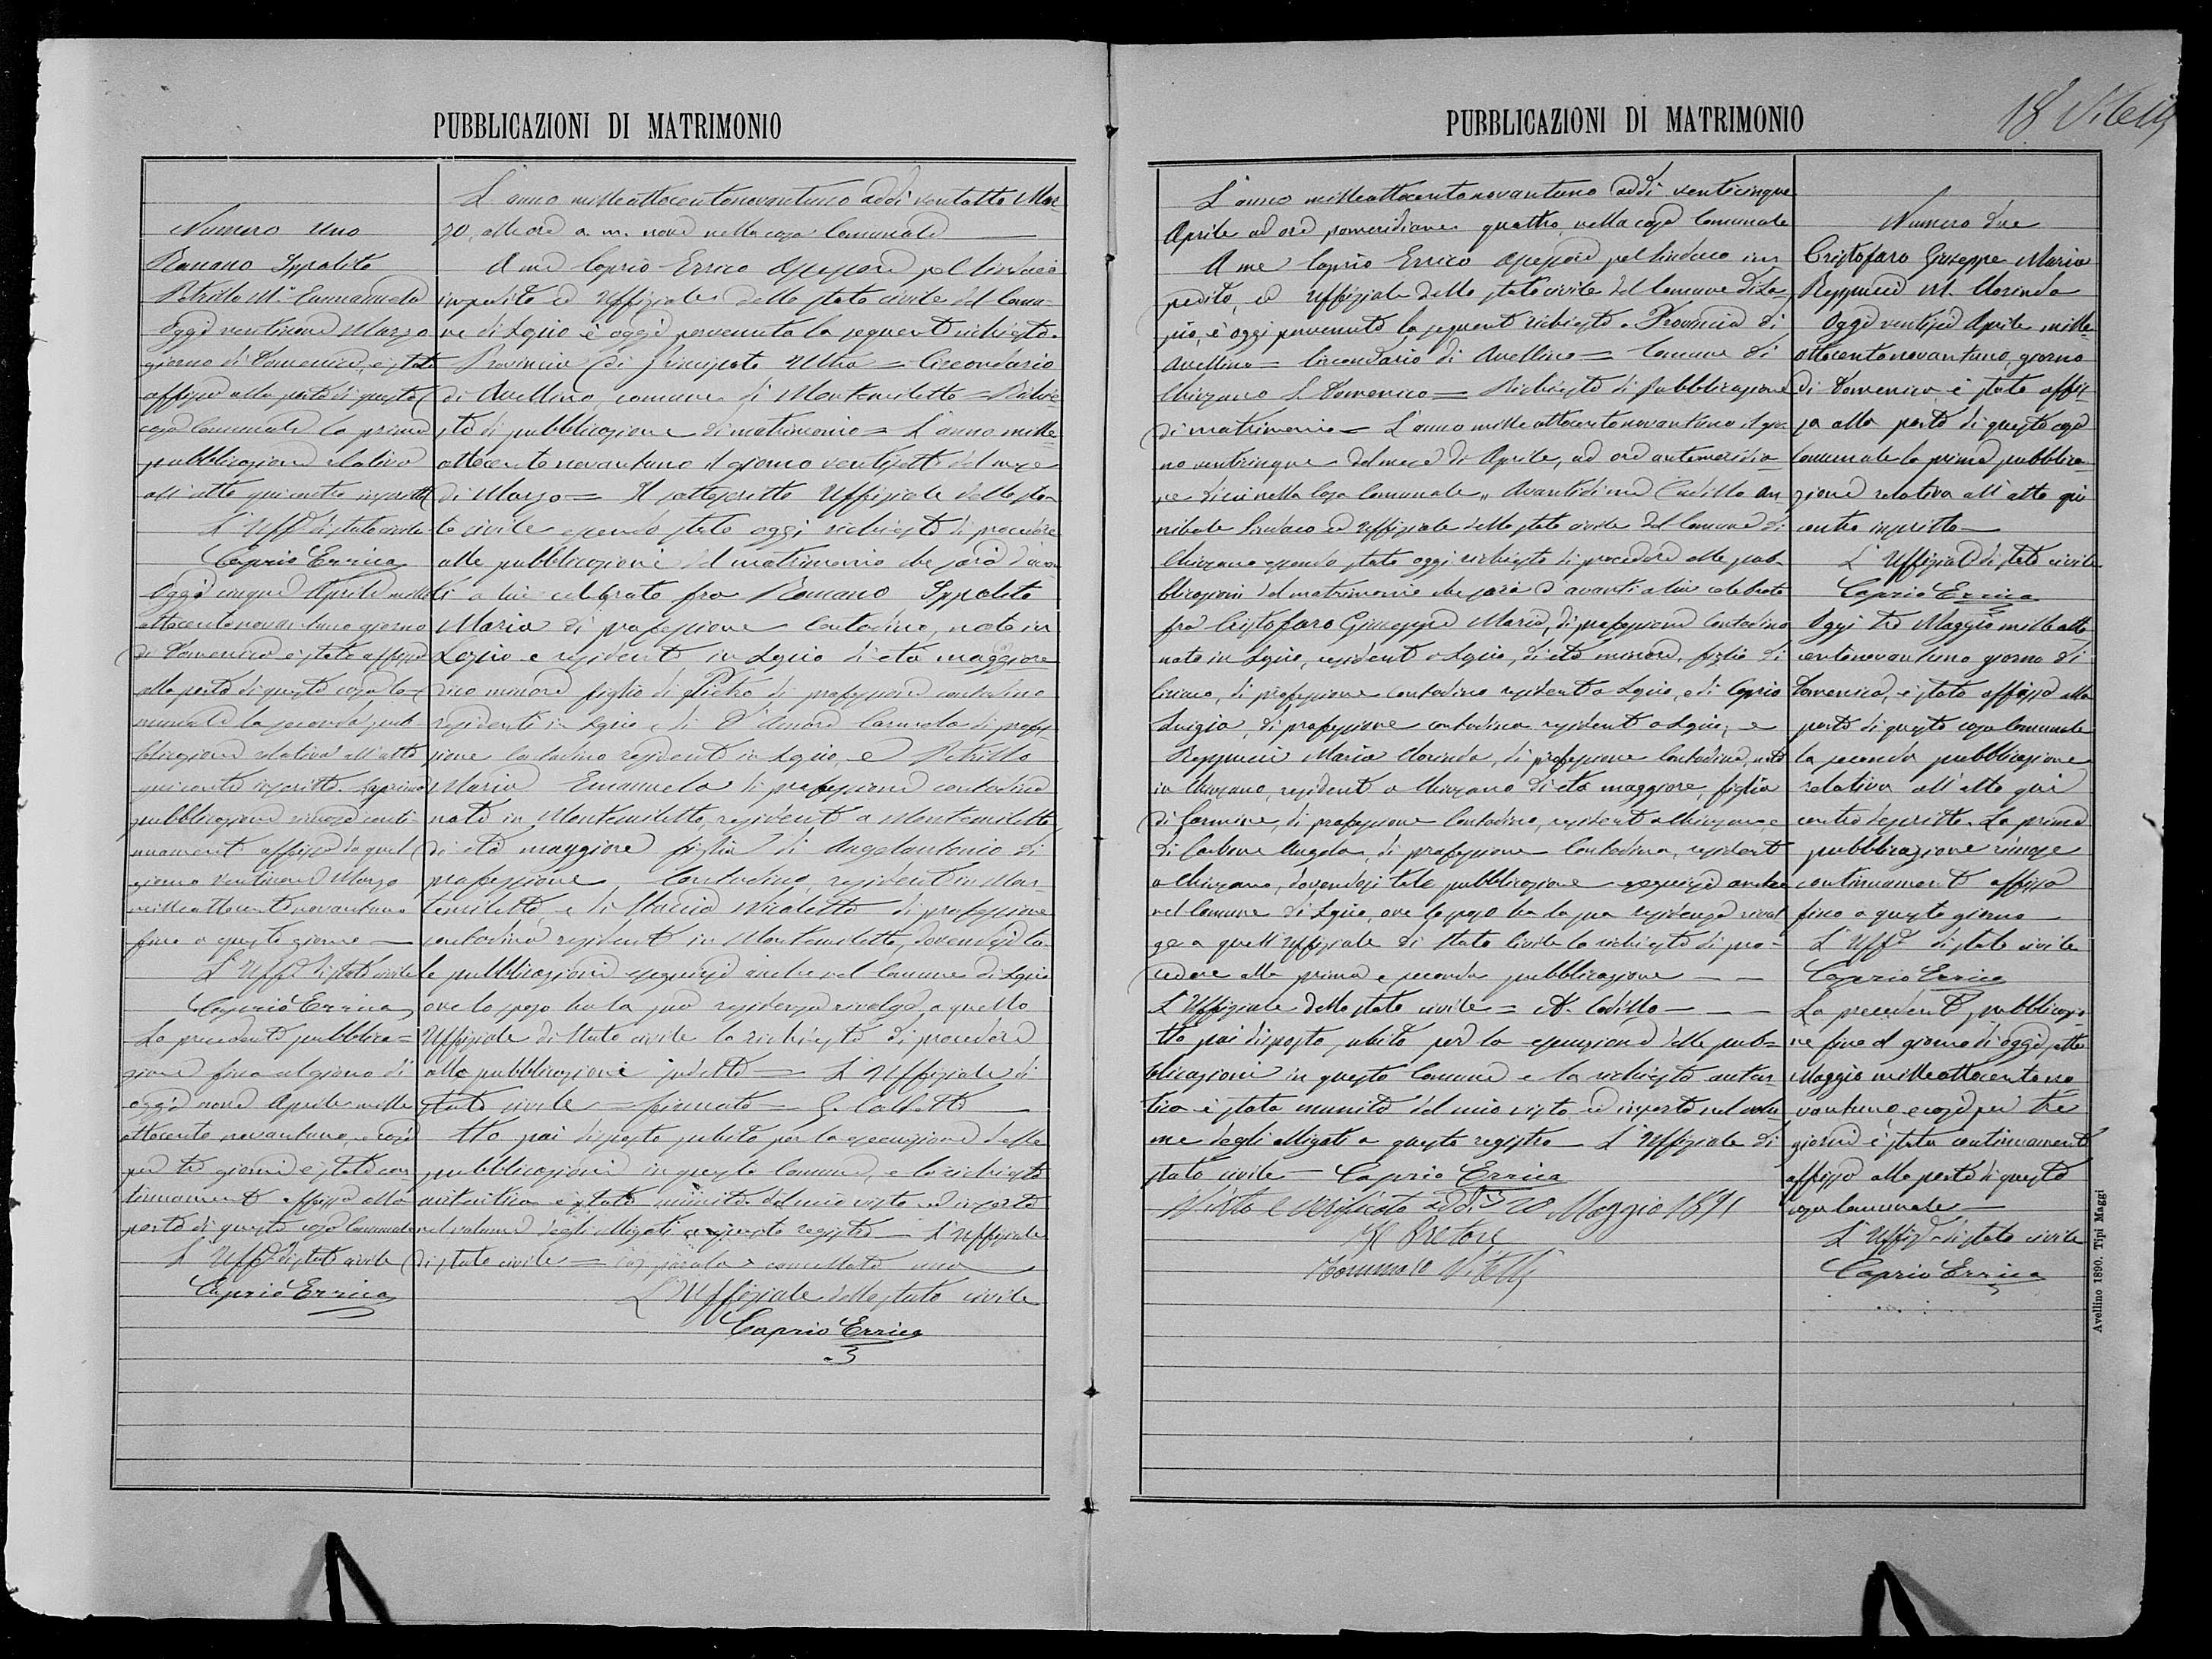 PUBBLICAZIONI DI MATRIMONIO
Numero Uno
Romano Ippolito
Petrillo M.a Emmanuela
Oggi ventinove Marzo
giorno di Domenica, è stata
affissa alla porta di questa
casa Comunale la prima
pubblicazione relativa
all'atto qui contro inscritto
L'Uff.e di stato civile
Caprio Errico
Oggi cinque Aprile mille
ottocentonovantuno giorno
di Domenica è stata affissa
alla porta di questa casa Co-
munale la seconda pub-
blicazione relativa all'atto
qui contro inscritto. La prima
pubblicazione rimase conti-
nuamente affissa da quel
giorno ventinove Marzo
milleottocentonovantuno
fino a questo giorno —
L'Uff.e di stato civile
Caprio Errico
La precedente pubblica=
zione fino al giorno di
oggi nove Aprile mille
ottocento novantuno, e così
per tre giorni è stata con
tinuamente affissa alla
porta di questa casa Comunale
L'Uff.e di stato civile
Caprio Errico
L'anno milleottocentonovantuno addì ventotto Mar-
zo, alle ore a. m. nove nella casa Comunale —
A me Caprio Errico Assessore pel Sindaco
impedito ed Uffiziale dello stato civile del Comu-
ne di Lapio è oggi pervenuta la seguente richiesta.
Provincia di Principato Ultra = Circondario
di Avellino, comune di Montemiletto = Richie-
sta di pubblicazione di matrimonio = L'anno mille
ottocentonovantuno il giorno ventisette del mese
di Marzo = Il sottoscritto Uffiziale dello sta-
to civile essendo stato oggi richiesto di procedere
alle pubblicazioni del matrimonio che sarà davan
ti a lui celebrato fra Romano Ippolito
Maria di professione Contadino, nato in
Lapio e residente in Lapio di età maggiore
dico minore figlio di Pietro di professione contadino
residente in Lapio e di D'Amore Carmela di profes-
sione contadina residente in Lapio, e Petrillo
Maria Emanuela di professione contadina
nata in Montemiletto, residente a Montemiletto
di età maggiore figlia di Angelantonio di
professione Contadino, residente in Mon-
temiletto, e di Nicoletta di professione
contadina residente in Montemiletto, dovendosi ta-
le pubblicazioni eseguirsi anche nel Comune di Lapio
ove lo sposo ha la sua residenza rivolge, a quello
Uffiziale di Stato civile la richiesta di procedere
alla pubblicazione = L'Uffiziale di
stato civile = firmato =
Ho poi disposto subito per la esecuzione delle
pubblicazioni in questo Comune, e la richiesta
autentica è stata munita del mio visto ed inserta
nel volume degli allegati a questo registro — L'Uffiziale
di stato civile = cancellata una
L'Uffiziale dello stato civile
Caprio Errico
PUBBLICAZIONI DI MATRIMONIO
18 Vitelli
L'anno milleottocentonovantuno addì venticinque
Aprile ad ore pomeridiane quattro, nella casa Comunale
A me Caprio Errico Assessore pel Sindaco im
pedito, ed Uffiziale dello stato civile del Comune di La-
pio, è oggi pervenuta la seguente richiesta. Provincia di
Avellino = Circondario di Avellino = Comune di
Chiusano S. Domenico = Richiesta di Pubblicazione
di matrimonio = L'anno milleottocentonovantuno il gior
no venticinque del mese di Aprile, ad ore antemeridia-
ne dieci nella Casa Comunale, Avanti di me Codillo An
nibale Sindaco ed Uffiziale dello stato civile del Comune di
Chiusano essendo stato oggi richiesto di procedere alle pub-
blicazioni del matrimonio che sarà d'avanti a lui celebrato
fra Cristofaro Giuseppe Maria, di professione Contadino
nato in Lapio, residente a Lapio, di età minore, figlio di
Ciriaco, di professione contadino residente a Lapio, e di Caprio
Luigia, di professione contadina residente a Lapio; e
Reppucci Maria Clorinda, di professione Contadina, nata
in Chiusano, residente a Chiusano di età maggiore, figlia
di Carmine, di professione Contadino, residente a Chiusano, e
di Carbone Angela, di professione Contadina, residente
a Chiusano, dovendosi tale pubblicazione eseguirsi anche
nel Comune di Lapio, ove lo sposo ha la sua residenza rivol
ge a quell'Uffiziale di Stato Civile la richiesta di pro-
cedere alla prima e seconda pubblicazione — —
L'Uffiziale dello stato civile = A. Codillo — — —
Ho poi disposto, subito per la esecuzione delle pub=
blicazioni in questo Comune e la richiesta auten-
tica è stata munita del mio visto ed inserta nel volu
me degli allegati a questo registro — L'Uffiziale di
stato civile — Caprio Errico
Visto e verificato addì 20 Maggio 1891
Il Pretore
Tommaso Vitelli
Numero due
Cristofaro Giuseppe Maria
Reppucci M. Clorinda
Oggi ventisei Aprile mille
ottocentonovantuno, giorno
di Domenica, è stata affis-
sa alla porta di questa casa
Comunale la prima pubblica-
zione relativa all'atto qui
contro inscritto —
L'Uffiziale di stato civile
Caprio Errico
Oggi tre Maggio milleotto
centonovantuno giorno di
Domenica, è stata affissa alla
porta di questa casa Comunale
la seconda pubblicazione
relativa all'atto qui
contro descritto. La prima
pubblicazione rimase
continuamente affissa
fino a questo giorno —
L'Uff.e di stato civile
Caprio Errico
La precedente pubblicazio-
ne fino al giorno di oggi, sette
Maggio milleottocentono
vantuno, e così per tre
giorni è stata continuamente
affissa alla porta di questa
casa Comunale —
L'Uffiz.e di stato civile
Caprio Errico
Avellino 1890. Tipi Maggi